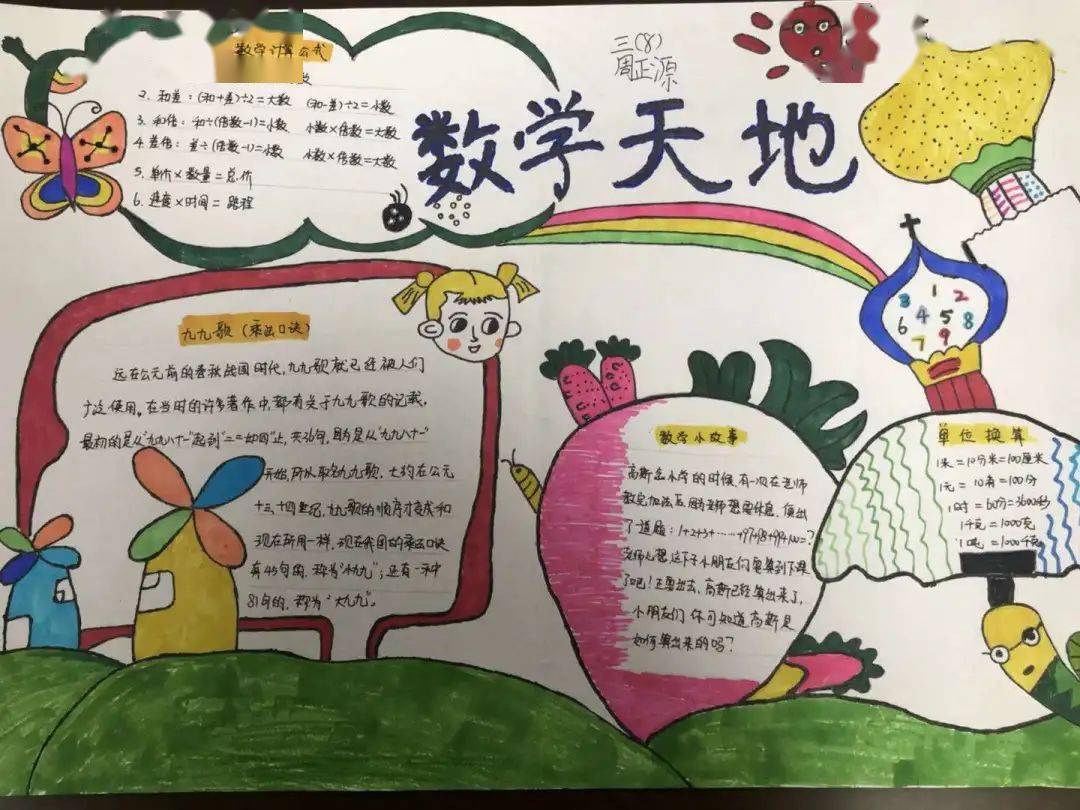 数学计算公式
数
2. 和差：(和+差)÷2=大数 (和-差)÷2=小数
3. 和倍：和÷(倍数-1)=小数 小数×倍数=大数
4. 差倍：差÷(倍数-1)=小数 小数×倍数=大数
5. 单价×数量=总价
6. 速度×时间=路程
三(8)
周正源
数学天地
九九歌(乘法口诀)
远在公元前的春秋战国时代,九九歌就已经被人们
广泛使用。在当时的许多著作中,都有关于九九歌的记载。
最初的是从"九九八十一"起到"二二如四"止,共36句,因为是从"九九八十一"
开始,所以取名九九歌。大约在公元
十三、十四世纪,九九歌的顺序才变成和
现在所用一样,现在我国的乘法口诀
有45句的,称为"小九九";还有一种
81句的,称为"大九九"。
1 2
3 4 5 8
6 7 9
数学小故事
高斯在小学的时候,有一次在老师
教完加法后,老师想要休息,便出
了一道题:1+2+3+……+97+98+99+100=?
老师心想,这下子小朋友们要算到下课
了吧!正要出去,高斯已经算出来了,
小朋友们你可知道高斯是
如何算出来的吗?
单位换算
1米=10分米=100厘米
1元=10角=100分
1时=60分=3600秒
1千克=1000克
1吨=1000千克